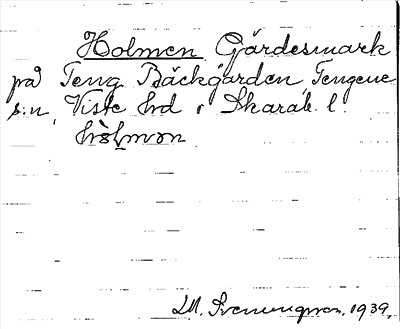 Holmen Gärdesmark
på Teng Bäckgården, Tengene
s:n, Viste hd i Skarab. l.
hòlmon
M. Svenungsson. 1939.